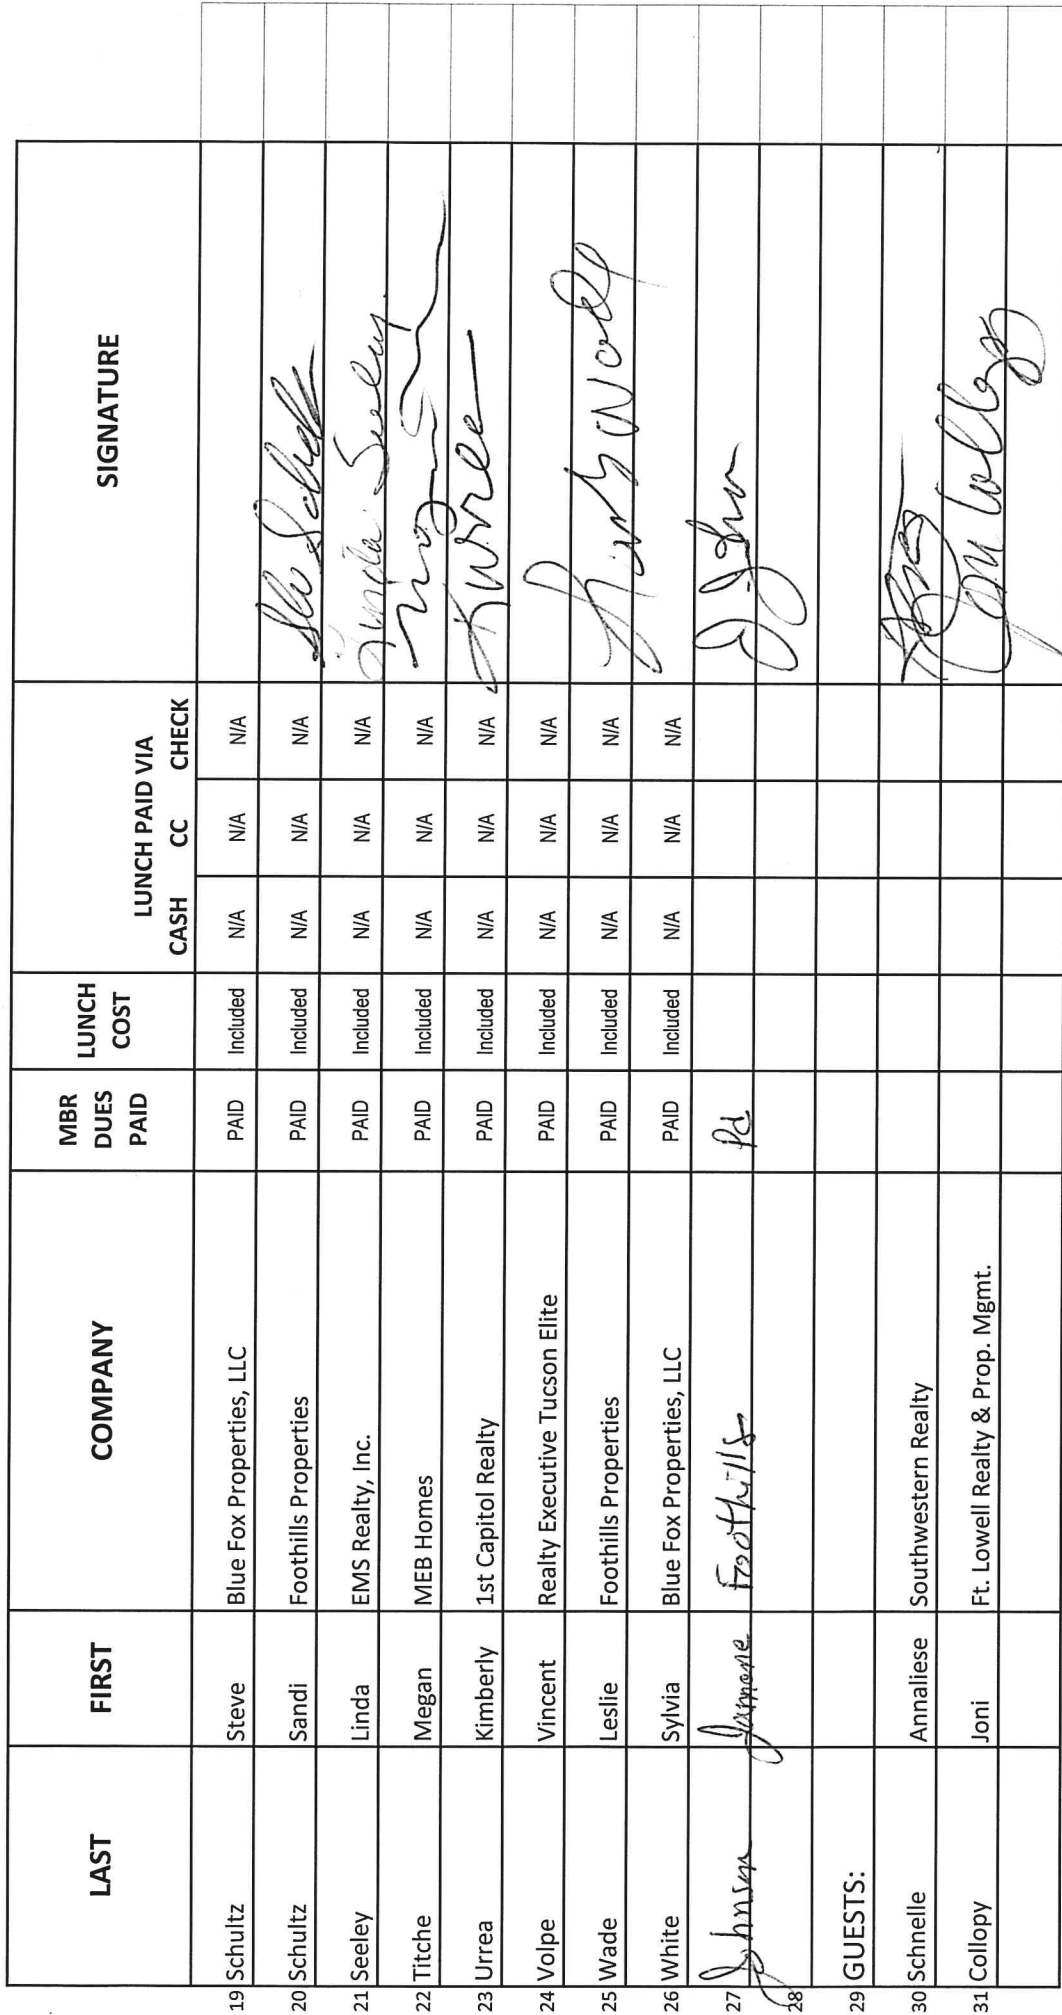 LAST FIRST COMPANY MBR DUES PAID LUNCH COST LUNCH PAID VIA CASH CC CHECK SIGNATURE
19 Schultz Steve Blue Fox Properties, LLC PAID Included N/A N/A N/A
20 Schultz Sandi Foothills Properties PAID Included N/A N/A N/A
21 Seeley Linda EMS Realty, Inc. PAID Included N/A N/A N/A Linda Seeley
22 Titche Megan MEB Homes PAID Included N/A N/A N/A
23 Urrea Kimberly 1st Capitol Realty PAID Included N/A N/A N/A KUrrea
24 Volpe Vincent Realty Executive Tucson Elite PAID Included N/A N/A N/A
25 Wade Leslie Foothills Properties PAID Included N/A N/A N/A
26 White Sylvia Blue Fox Properties, LLC PAID Included N/A N/A N/A
27 Johnson Jamone Foothills Pd
28
29 GUESTS:
30 Schnelle Annaliese Southwestern Realty
31 Collopy Joni Ft. Lowell Realty & Prop. Mgmt. Joni Collopy